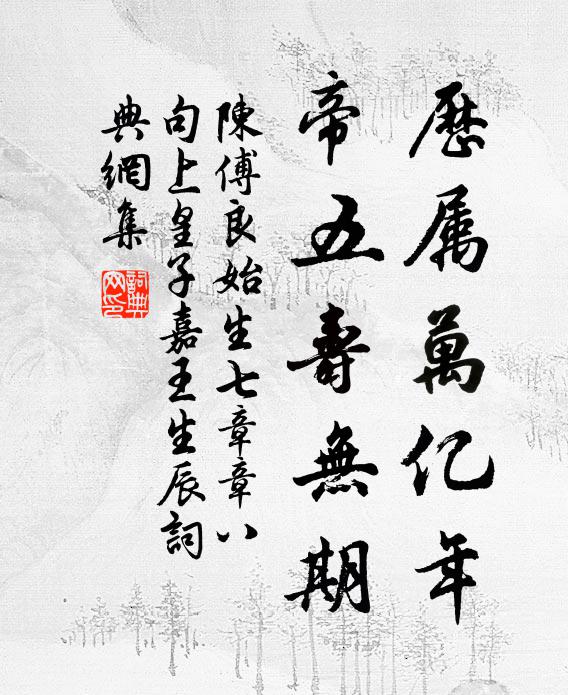 歷属萬亿年
帝五壽無期
陳傅良始生七章章八
句上皇子嘉王生辰詞
典網集
詞典
网印